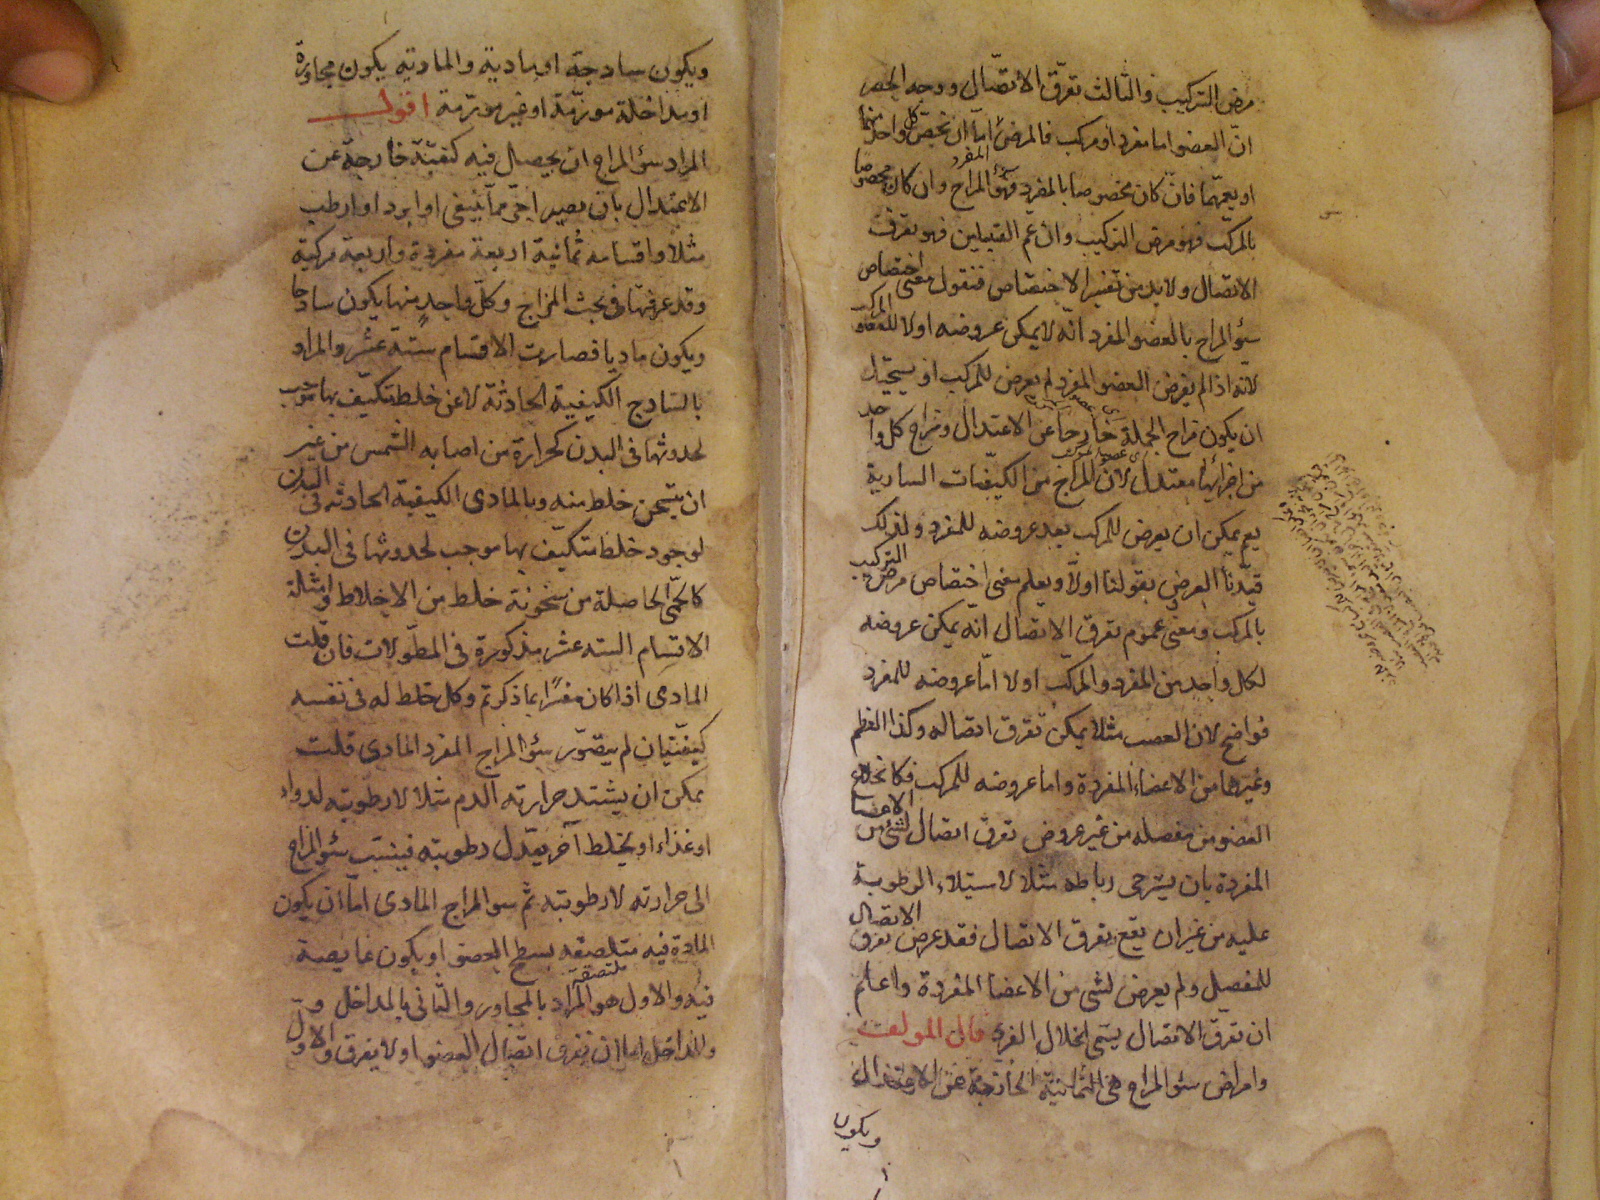 مرض التركيب والثالث تفرّق الاتصّال ووجه الحصر
انّ العضو اما مفرد او مركب فالمرض امّا ان يختصّ كل واحد منهما
او يعمّهما فان كان مخصوصا بالمفرد فهو سوٴ المزاج المفرد وان كان مخصوصا
بالمركب فهو مرض التركيب وان عم القبيلين فهو تفرق
الاتصال ولا بد من تفسير الاختصاص فنقول معنى اختصاص
سوٴ المزاج بالعضو المفرد انّه لا يمكن عروضه اولا للعضو المركب
لانه اذا لم يعرض العضو المفرد لم يعرض للمركب اذ يستحيل
ان يكون مزاج الجملة خارجا عن الاعتدال ومزاج كل واحد
من اجزائها معتدل لان المزاج من الكيفيات السارية
نعم يمكن ان يعرض للمركب بعد عروضه للمفرد ولذلك
قيّدنا العرض بقولنا اولا ويعلم معنى اختصاص مرض التركيب
بالمركب ومعنى عموم تفرق الاتصال انّه يمكن عروضه
لكل واحد من المفرد والمركب اولا امّا عروضه للمفرد
فواضح لان العصب مثلا يمكن تفرق اتصاله وكذا العظم
وغيرها من الاعضاء المفردة واما عروضه للمركب فكانخلاع
العضو من مفصله من غير عروض تفرق اتصال لشئ من الاعضا
المفردة بان يسترخى رباطه مثلا لاستيلاء الرطوبة
عليه من غير ان يقع تفرق الاتصال فقد عرض تفرق الاتصال
للمفصل ولم يعرض لشى من الاعضا المفردة واعلم
ان تفرّق الاتصال يسمى انحلال الفرد قال المولف
وامراض سوٴ المزاج هى الثمانية الخارجة عن الاعتدال
ويكون
ويكون سادجة او مادية والمادية يكون مجاورة
او مداخلة مورّمة او غير مورّمة اقول
المراد بسوٴ المزاج ان يحصل فيه كيفيّة خارجة عن
الاعتدال بان يصير احرّ ممّا ينبغى او ابرد او ارطب
مثلا واقسامه ثمانية اربعة مفردة واربعة مركبة
وقد عرفتها فى بحث المزاج وكلّ واحد منها يكون سادجا
ويكون ماديا فصارت الاقسام ستة عشر والمراد
بالسادج الكيفية الحادثة لا عن خلط متكيّف بها موجب
لحدوثها فى البدن كحرارة من اصابه الشمس من غير
ان يتسخن خلط منه وبالمادى الكيفية الحادثه فى البدن
لوجود خلط متكيّف بها موجب لحدوثها فى البدن
كالحمّى الحاصلة من سخونة خلط من الاخلاط وامثلة
الاقسام الستة عشر مذكورة فى المطوّلات فان قلت
المادى اذا كان مفسّرا بما ذكرتم وكل خلط له فى نفسه
كيفيّتان لم يتصوّر سوٴ المزاج المفرد المادى قلت
يمكن ان يشتد حرارته الدم مثلا لا رطوبته لدواء
او غذاء او يخلط آخر يعدّل رطوبته فينسب سوٴ المزاج
الى حرارته لا رطوبته ثم سوٴ المزاج المادى امّا ان يكون
المادة فيه ملتصقة بسطح العضو او يكون غايصة
فيه والاول هو المراد بالمجاور والثانى بالمداخل و
والمداخل اما ان تفرق اتصال العضو او لا يفرق والاوّل